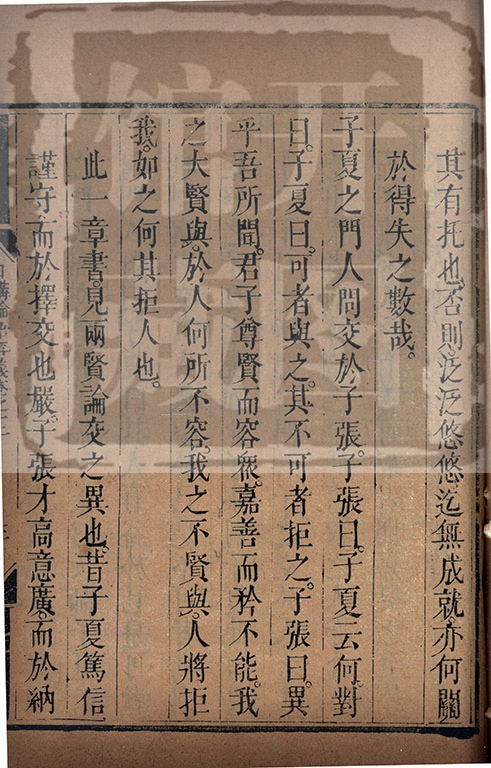 其有托也。否則。泛泛悠悠。迄無成就。亦何關
於得失之數哉。
子夏之門人問交於子張。子張曰。子夏云何。對
曰。子夏曰。可者與之。其不可者拒之。子張曰。異
乎吾所聞。君子尊賢而容衆。嘉善而矜不能。我
之大賢與。於人何所不容。我之不賢與。人將拒
我。如之何其拒人也。
此一章書。見兩賢論交之異也。昔子夏篤信
謹守。而於擇交也嚴。子張才高意廣。而於納